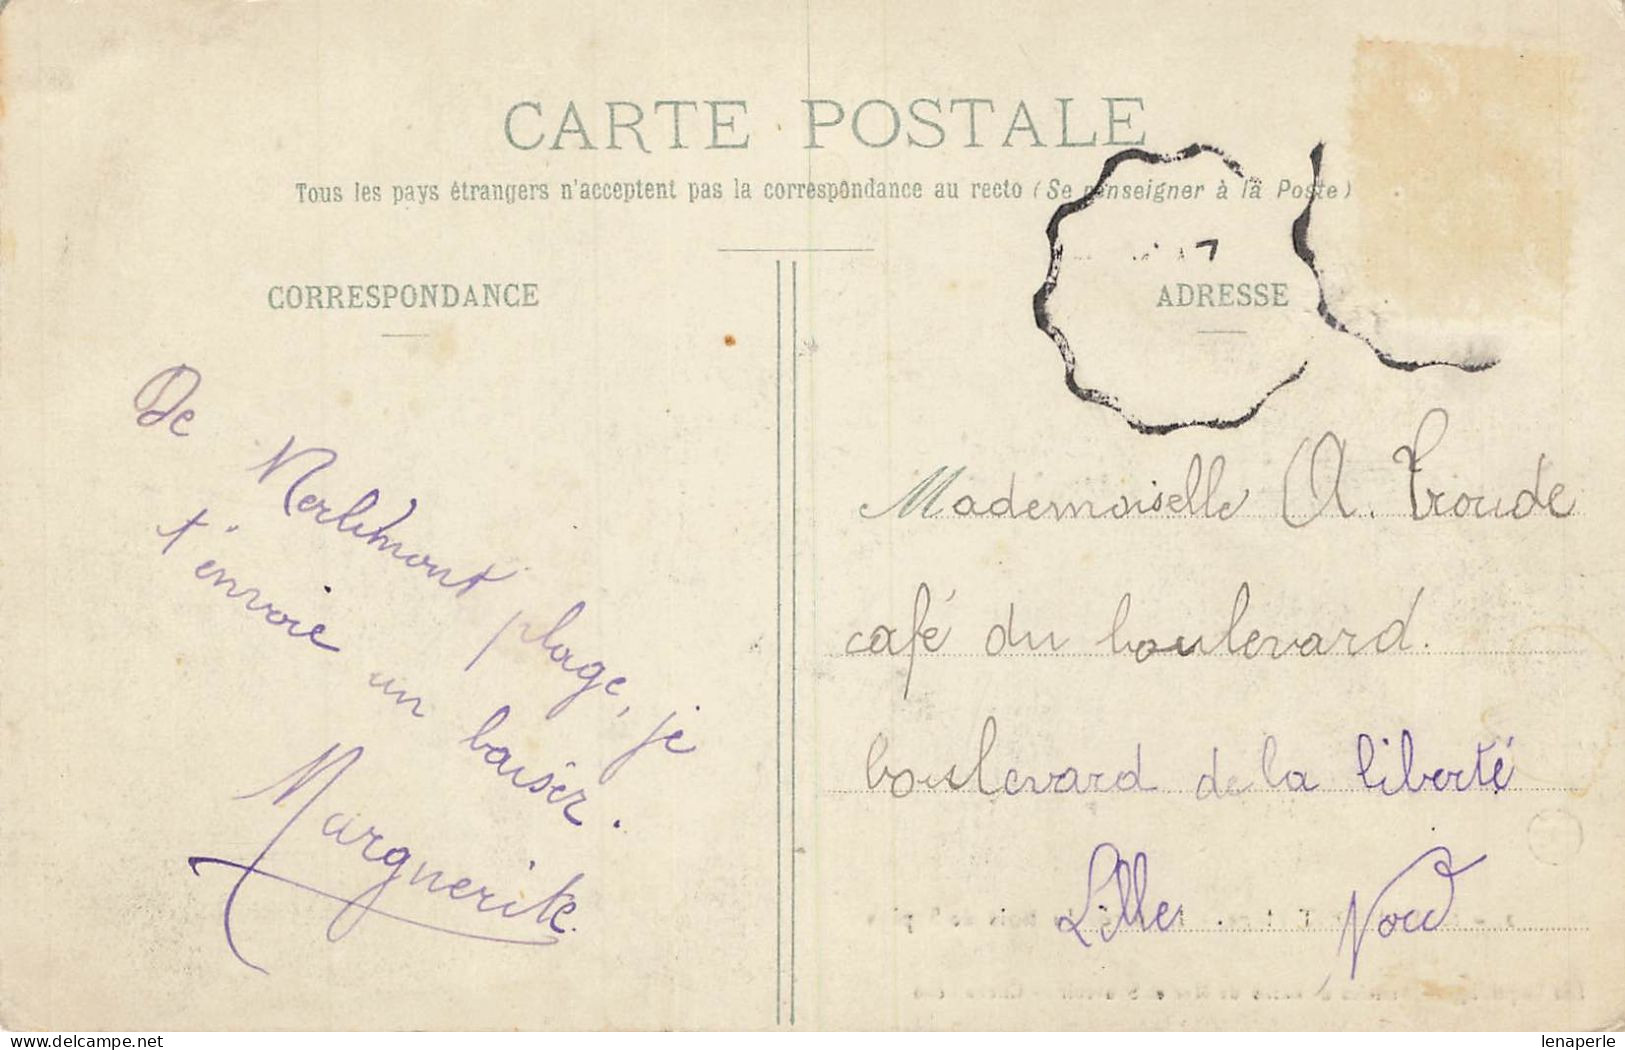 CARTE POSTALE
Tous les pays étrangers n'acceptent pas la correspondance au recto (Se renseigner à la Poste)
CORRESPONDANCE
De Merlimont plage, je
t'envoie un baiser.
Marguerite
ADRESSE
Mademoiselle A. Troude
café du boulevard.
boulevard de la liberté
Lille Nord
lenaperle